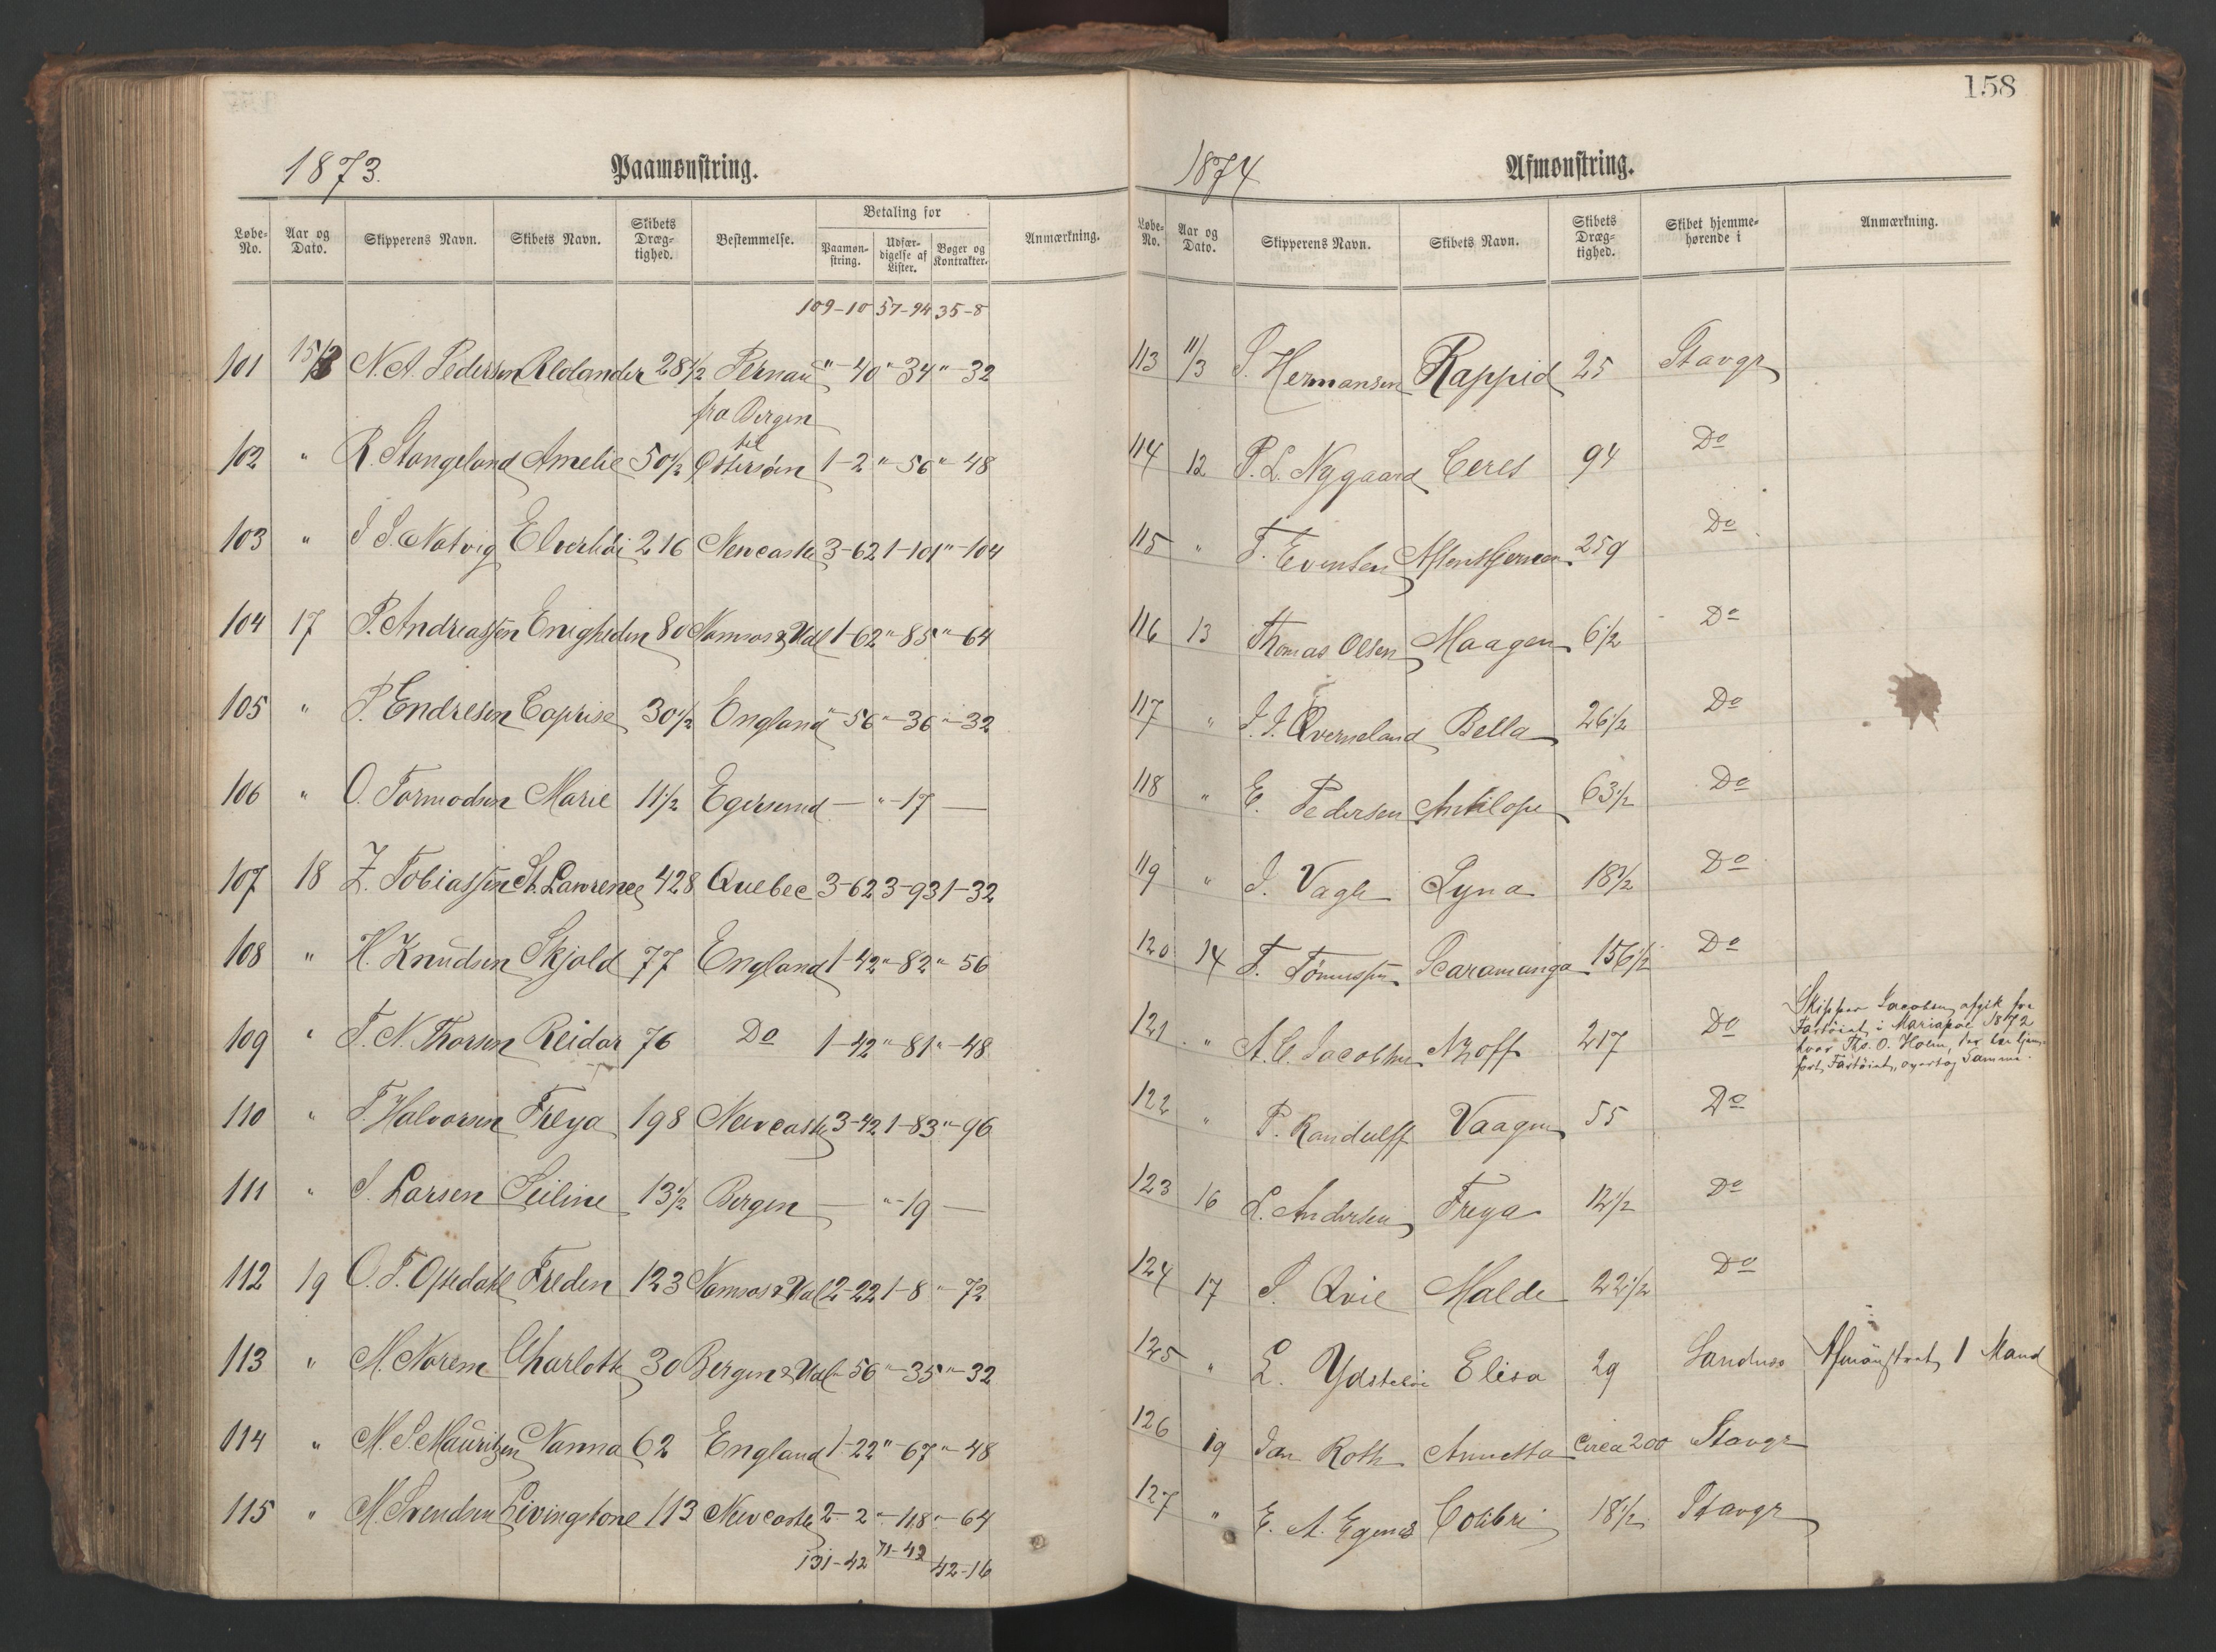 1873. Paamønstring.
Løbe-No. Aar og Dato. Skipperens Navn. Skibets Navn. Skibets Dræg-tighed. Bestemmelse. Betaling for Paamøn-string. Udfær-digelse af Lister. Bøger og Kontrakter. Anmærkning.
109-10 57-94 35-8
101 15/3 N. A. Pedersen Rldander 28 1/2 Pernau " - 40 " - 34 " - 32
fra Bergen
til
102 " R. Stangeland Amelie 50 1/2 Østersøen 1-2 " - 56 " - 48
103 " J S. Natvig Elverhöi 216 Newcastle 3-62 1-101 " - 104
104 17 P. Andreassen Enigheden 80 Namsos & Udl 1-62 " - 85 " - 64
105 " P. Endresen Caprise 30 1/2 England " - 56 " - 36 " - 32
106 " O. Tormodsen Marie 11 1/2 Egersund — " - 17 —
107 18 Z. Tobiassen St. Lawrence 428 Quebec 3-62 3-93 1-32
108 " H. Knudsen Skjold 77 England 1-42 " - 82 " - 56
109 " T. N. Thorsen Reidar 76 Do 1-42 " - 81 " - 48
110 " T. Halvorsen Freya 198 Newcastle 3-42 1-83 " - 96
111 " S. Larsen Seiline 13 1/2 Bergen — " - 19 —
112 19 O. T. Opsedahl Freden 123 Namsos & Udl 2-22 1-8 " - 72
113 " M. Norem Charlotte 30 Bergen & Udl " - 56 " - 35 " - 32
114 " M. S. Mauritzen Nanna 62 England 1-22 " - 67 " - 48
115 " M. Svendsen Livingstone 113 Newcastle 2-2 " - 118 " - 64
131-42 71-42 42-16
158
1874 Afmønstring.
Løbe-No. Aar og Dato. Skipperens Navn. Skibets Navn. Skibets Dræg-tighed. Skibet hjemme-hørende i Anmærkning.
113 11/3 S. Hermansen Rappid 25 Stavgr
114 12 P. L. Nygaard Ceres 94 Do
115 " T. Evensen Aftenstjernen 259 Do
116 13 Thomas Olsen Maagen 6 1/2 Do
117 " J. J. Qverneland Bella 26 1/2 Do
118 " E. Pedersen Antilope 63 1/2 Do
119 " J. Vagle Lyna 18 1/2 Do
120 14 T. Tönnessen Scaramanga 156 1/2 Do
121 " A. C. Jacobsen Azoff 217 Do Skipper Jacobsen afgik fra
Fartöiet i Mariapol 1872
hvor Ths. O. Holm, der har hjem-
fört Fartöiet, overtog Samme.
122 " P. Randulff Vaagen 55 Do
123 16 L. Andersen Freya 12 1/2 Do
124 17 S. Qvie Malde 22 1/2 Do
125 " L. Ydstebö Elisa 29 Sandnes Afmönstret 1 Mand
126 19 Jan Roth Annetta Circa 200 Stavgr
127 " E. A. Egenes Colibri 18 1/2 Stavgr